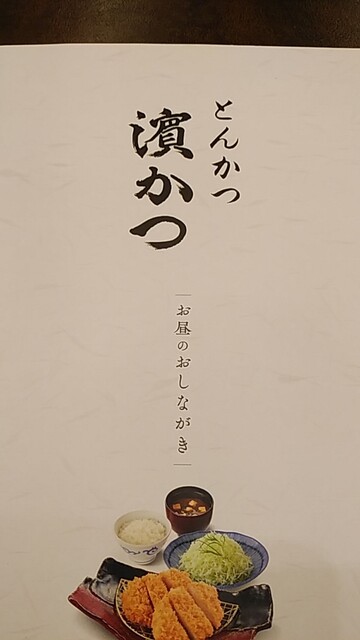 とんかつ
濵かつ
お昼のおしながき